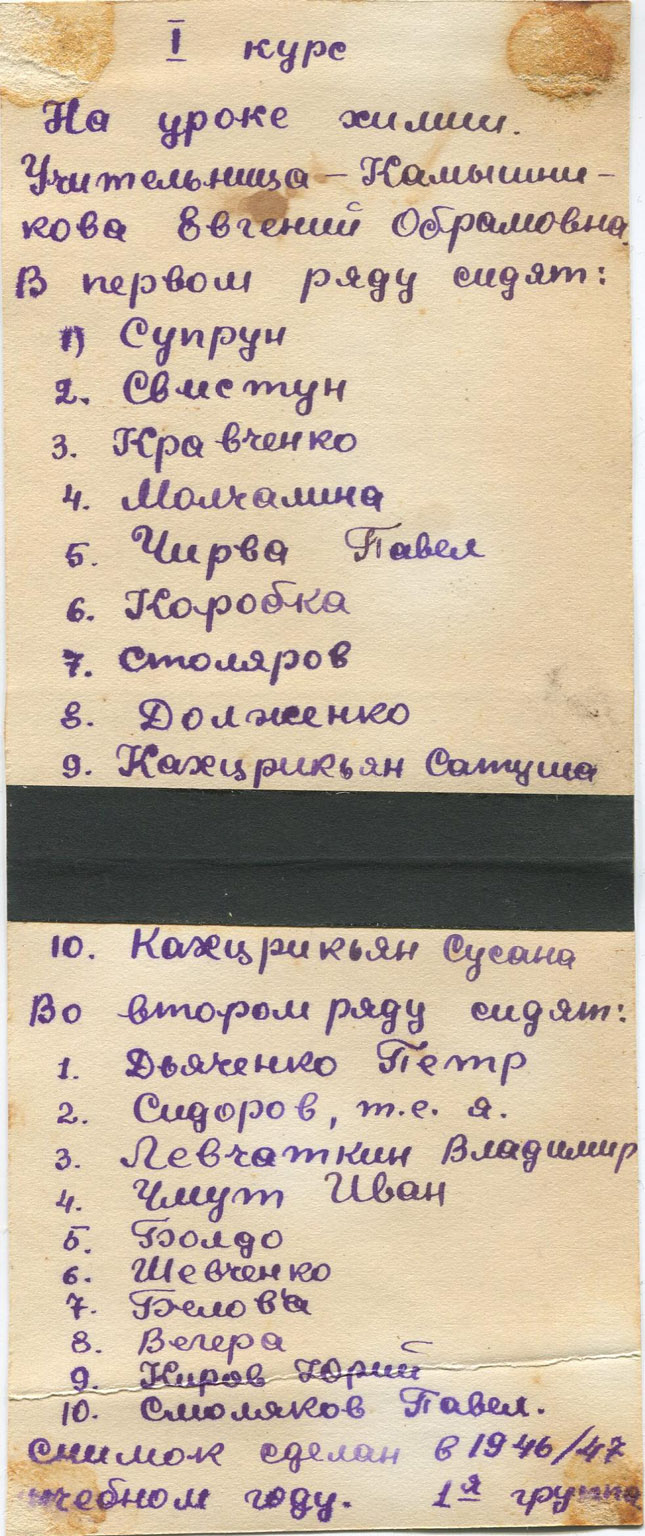 I курс
На уроке химии.
Учительница – Камышни-
кова Евгений Обрамовна.
В первом ряду сидят:
1) Супрун
2. Свистун
3. Кравченко
4. Молчалина
5. Чирва Павел
6. Коробка
7. Столяров
8. Долженко
9. Кахцрикьян Сатуша
10. Кахцрикьян Сусана
Во втором ряду сидят:
1. Дьяченко Петр
2. Сидоров, т.е. я.
3. Левчаткин Владимир
4. Чмут Иван
5. Болдо
6. Шевченко
7. Белова
8. Вегера
9. Киров Юрий
10. Смоляков Павел.
снимок сделан в 1946/47
учебном году. 1я группа